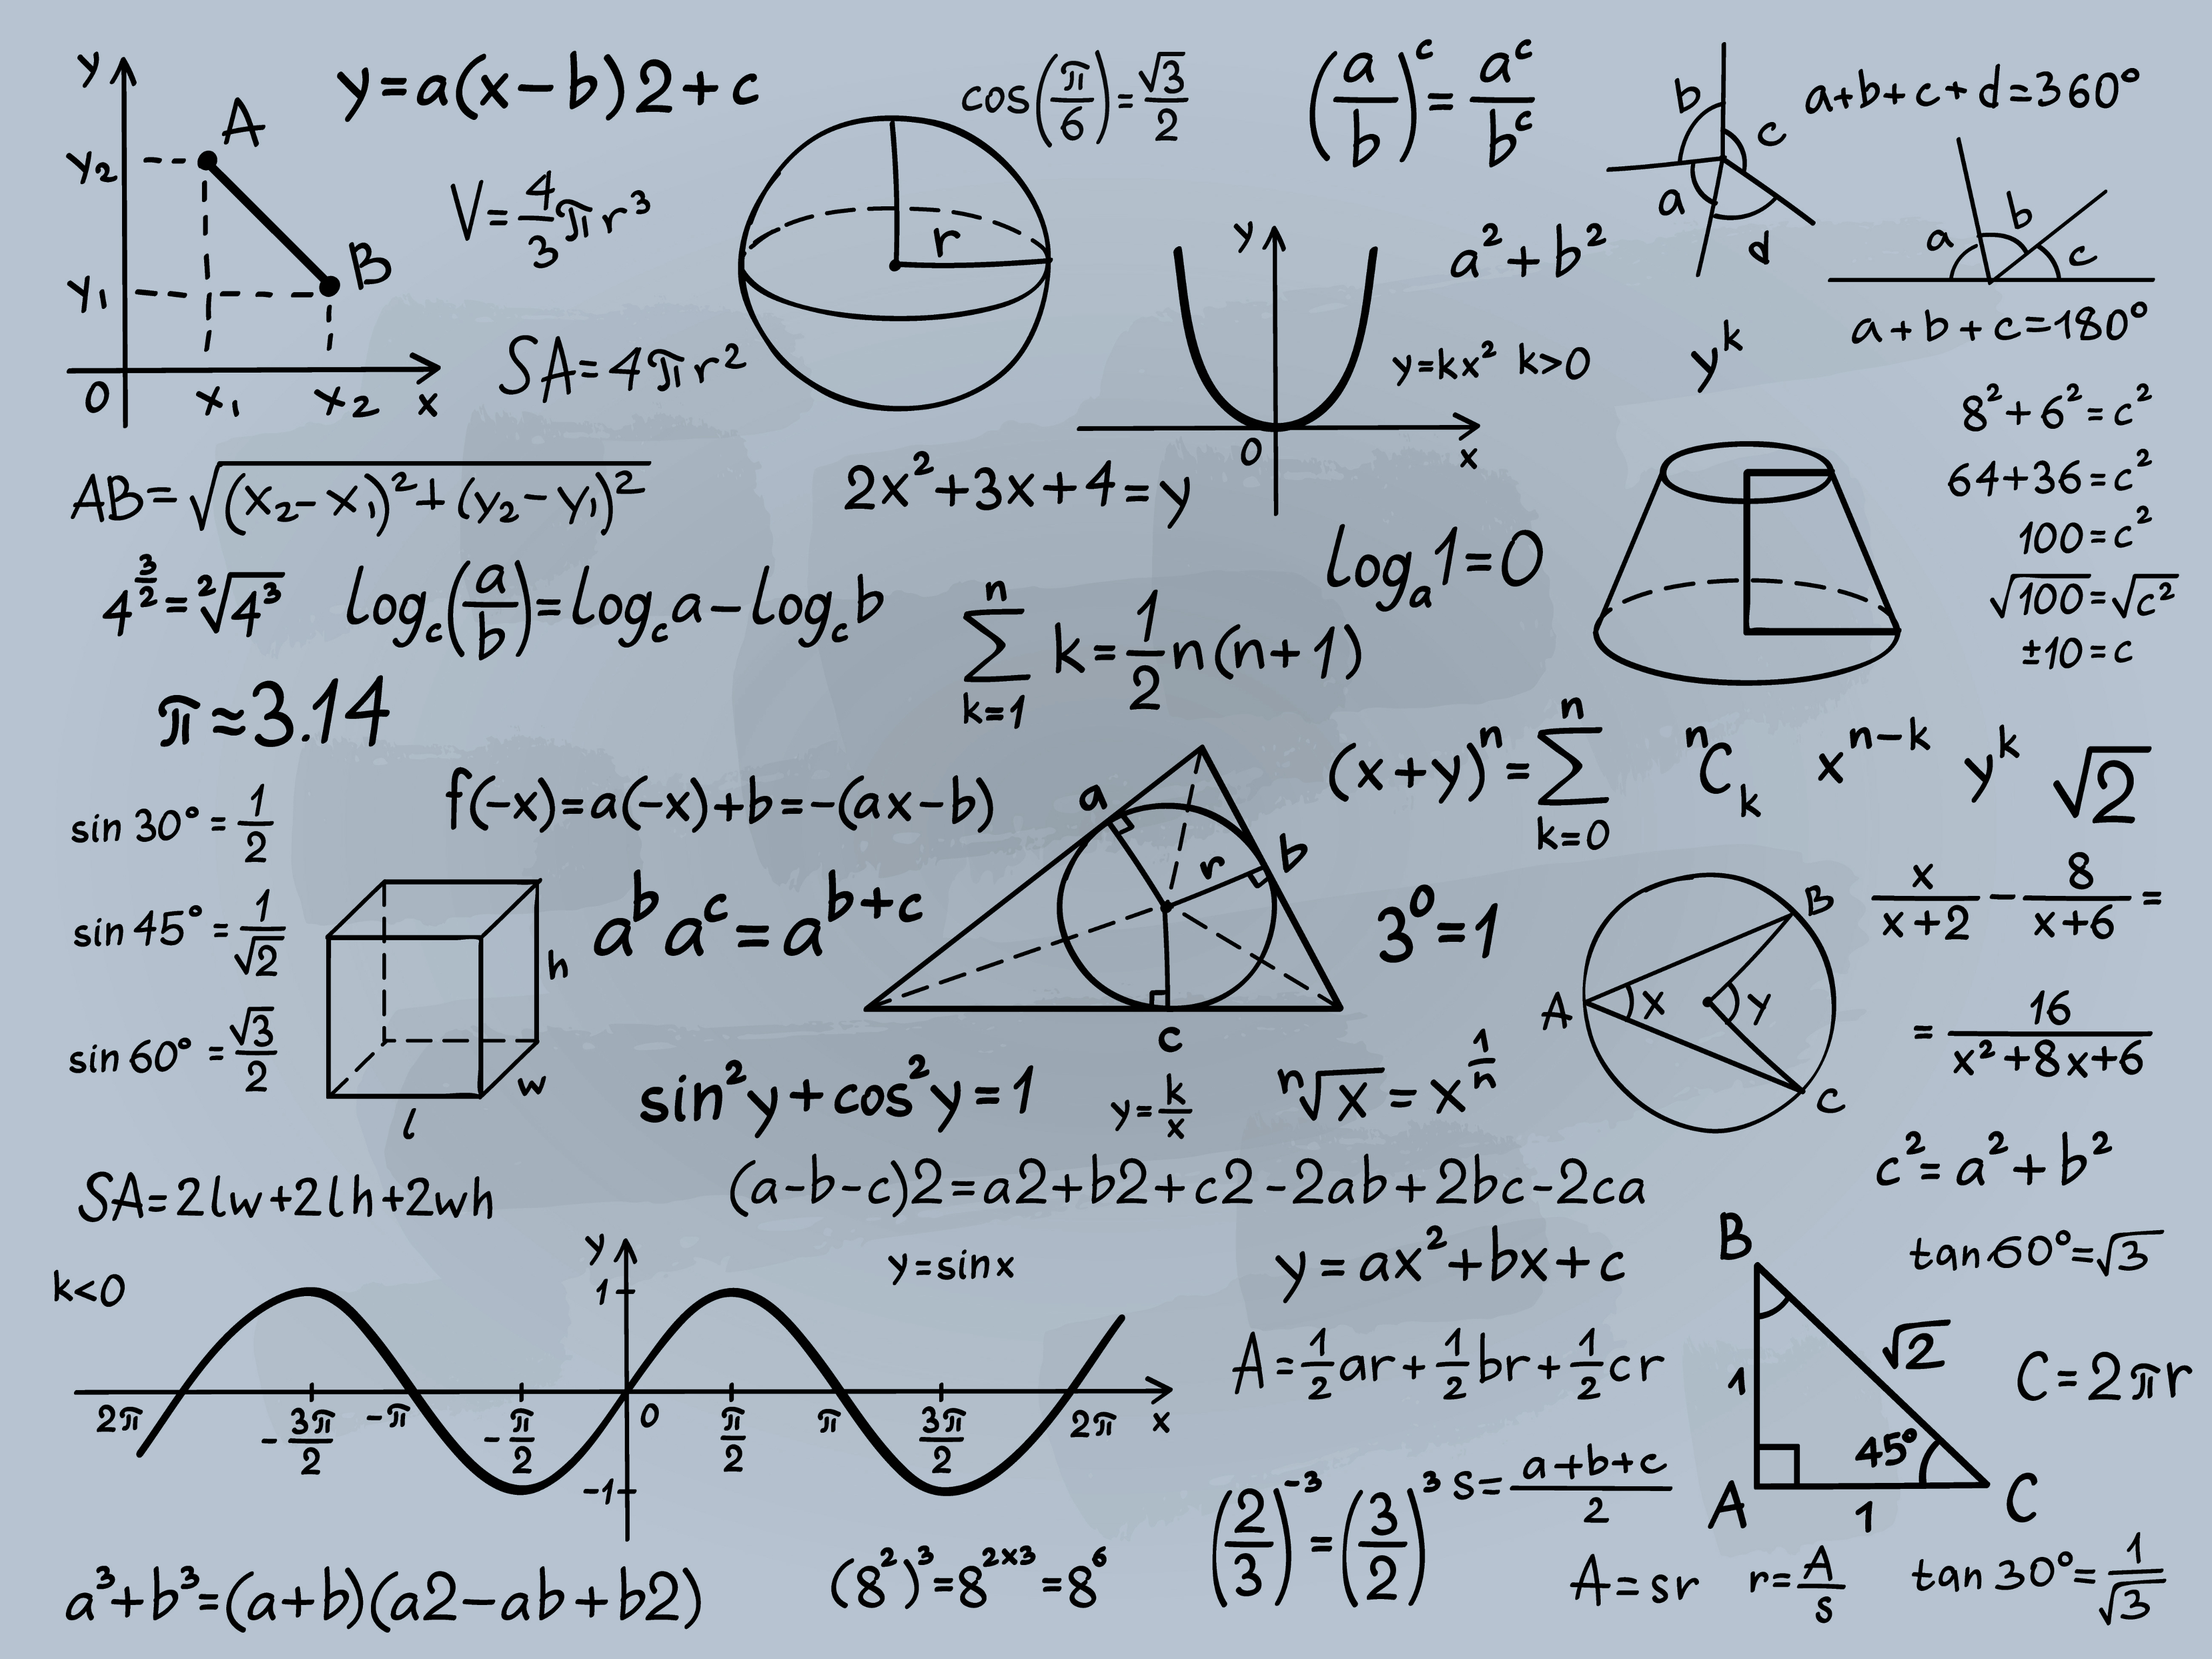 y
A
y₂
B
y₁
0
x₁
x₂
x
y=a(x-b)2+c
V=4/3πr³
SA=4πr²
r
cos(π/6)=√3/2
(a/b)ᶜ=aᶜ/bᶜ
b
c
a
d
a+b+c+d=360°
a
b
c
a+b+c=180°
y
0
x
a²+b²
y=kx² k>0
yᵏ
8²+6²=c²
64+36=c²
100=c²
√100=√c²
±10=c
AB=√(x₂-x₁)²+(y₂-y₁)²
2x²+3x+4=y
4^(3/2)=²√4³
log_c(a/b)=log_c a-log_c b
n
∑ k=1/2n(n+1)
k=1
logₐ1=0
π≈3.14
(x+y)ⁿ=∑ ⁿCₖ xⁿ⁻ᵏ yᵏ √2
n
k=0
sin 30°=1/2
sin 45°=1/√2
sin 60°=√3/2
f(-x)=a(-x)+b=-(ax-b)
h
w
l
aᵇaᶜ=aᵇ⁺ᶜ
a
r
b
c
3⁰=1
B
A
x
y
C
x/x+2-8/x+6=
=16/x²+8x+6
sin²y+cos²y=1
y=k/x
ⁿ√x=x^(1/n)
SA=2lw+2lh+2wh
(a-b-c)2=a2+b2+c2-2ab+2bc-2ca
c²=a²+b²
k<0
y
1
y=sinx
2π
-3π/2
-π
-π/2
0
π/2
π
3π/2
2π
x
-1
y=ax²+bx+c
A=1/2ar+1/2br+1/2cr
B
tan60°=√3
√2
1
C=2πr
45°
A
1
C
(2/3)⁻³=(3/2)³
s=a+b+c/2
a³+b³=(a+b)(a2-ab+b2)
(8²)³=8²ˣ³=8⁶
A=sr
r=A/s
tan30°=1/√3